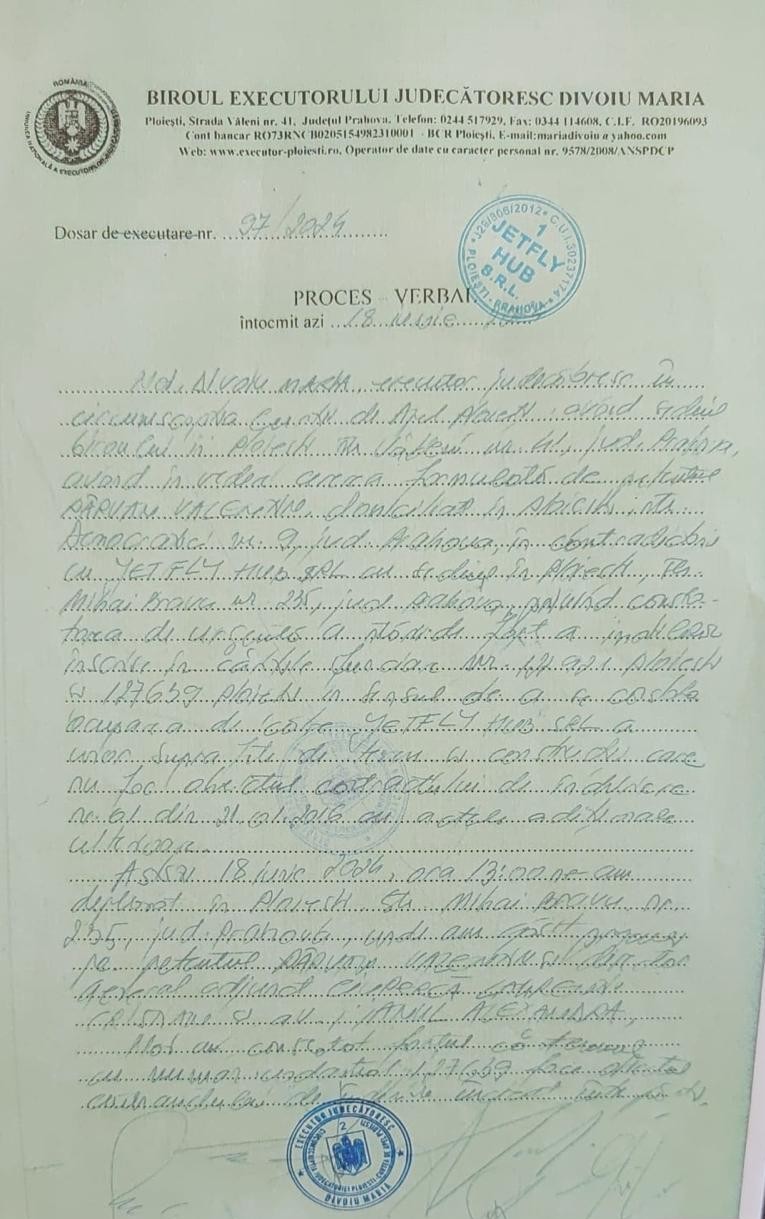 ROMÂNIA
BIROUL EXECUTORULUI JUDECĂTORESC DIVOIU MARIA
Ploiești, Strada Văleni nr. 41, Județul Prahova, Telefon: 0244 517929, Fax: 0344 114608, C.I.F. RO20196093
Cont bancar RO73RNCB0205154982310001 - BCR Ploiești, E-mail:mariadivoiu@yahoo.com
Web: www.executor-ploiesti.ro, Operator de date cu caracter personal nr. 9578/2008/ANSPDCP
Dosar de executare nr. 97/2024
J29/806/2012 * C.U.I. 30237174
PLOIEȘTI - PRAHOVA
1
JETFLY
HUB
S.R.L.
PROCES VERBAL
întocmit azi 18 iunie
Divoiu Maria, executor judecătoresc în
circumscripția Curții de Apel Ploiești, având sediul
biroului în Ploiești, str. Văleni nr. 41, jud. Prahova,
având în vedere cererea formulată de petentul
domiciliat în Ploiești, str.
Democrației nr. 9, jud. Prahova, în contradictoriu
cu JETFLY HUB SRL cu sediul în Ploiești, str.
Mihai Bravu nr. 235, jud. Prahova, privind consta-
tarea de urgență a stării de fapt a imobilelor
înscrise în cărțile funciare nr. Ploiești
și 127659 Ploiești în sensul de a se constata
ocuparea de către JETFLY HUB SRL a
unor suprafețe de teren și construcții care
nu fac obiectul contractului de închiriere
nr. 61 din 21.01.2016 cu actele adiționale
ulterioare.
Astăzi 18 iunie 2024, ora 13:00 ne-am
deplasat în Ploiești, Str. Mihai Bravu nr.
235, jud. Prahova, unde am găsit
pe petentul și director
general adjunct
și av. ALEXANDRA.
am constatat faptul că
cu număr cadastral 127659 face obiectul
contractului de închiriere
EXECUTOR JUDECĂTORESC
2
DIVOIU MARIA